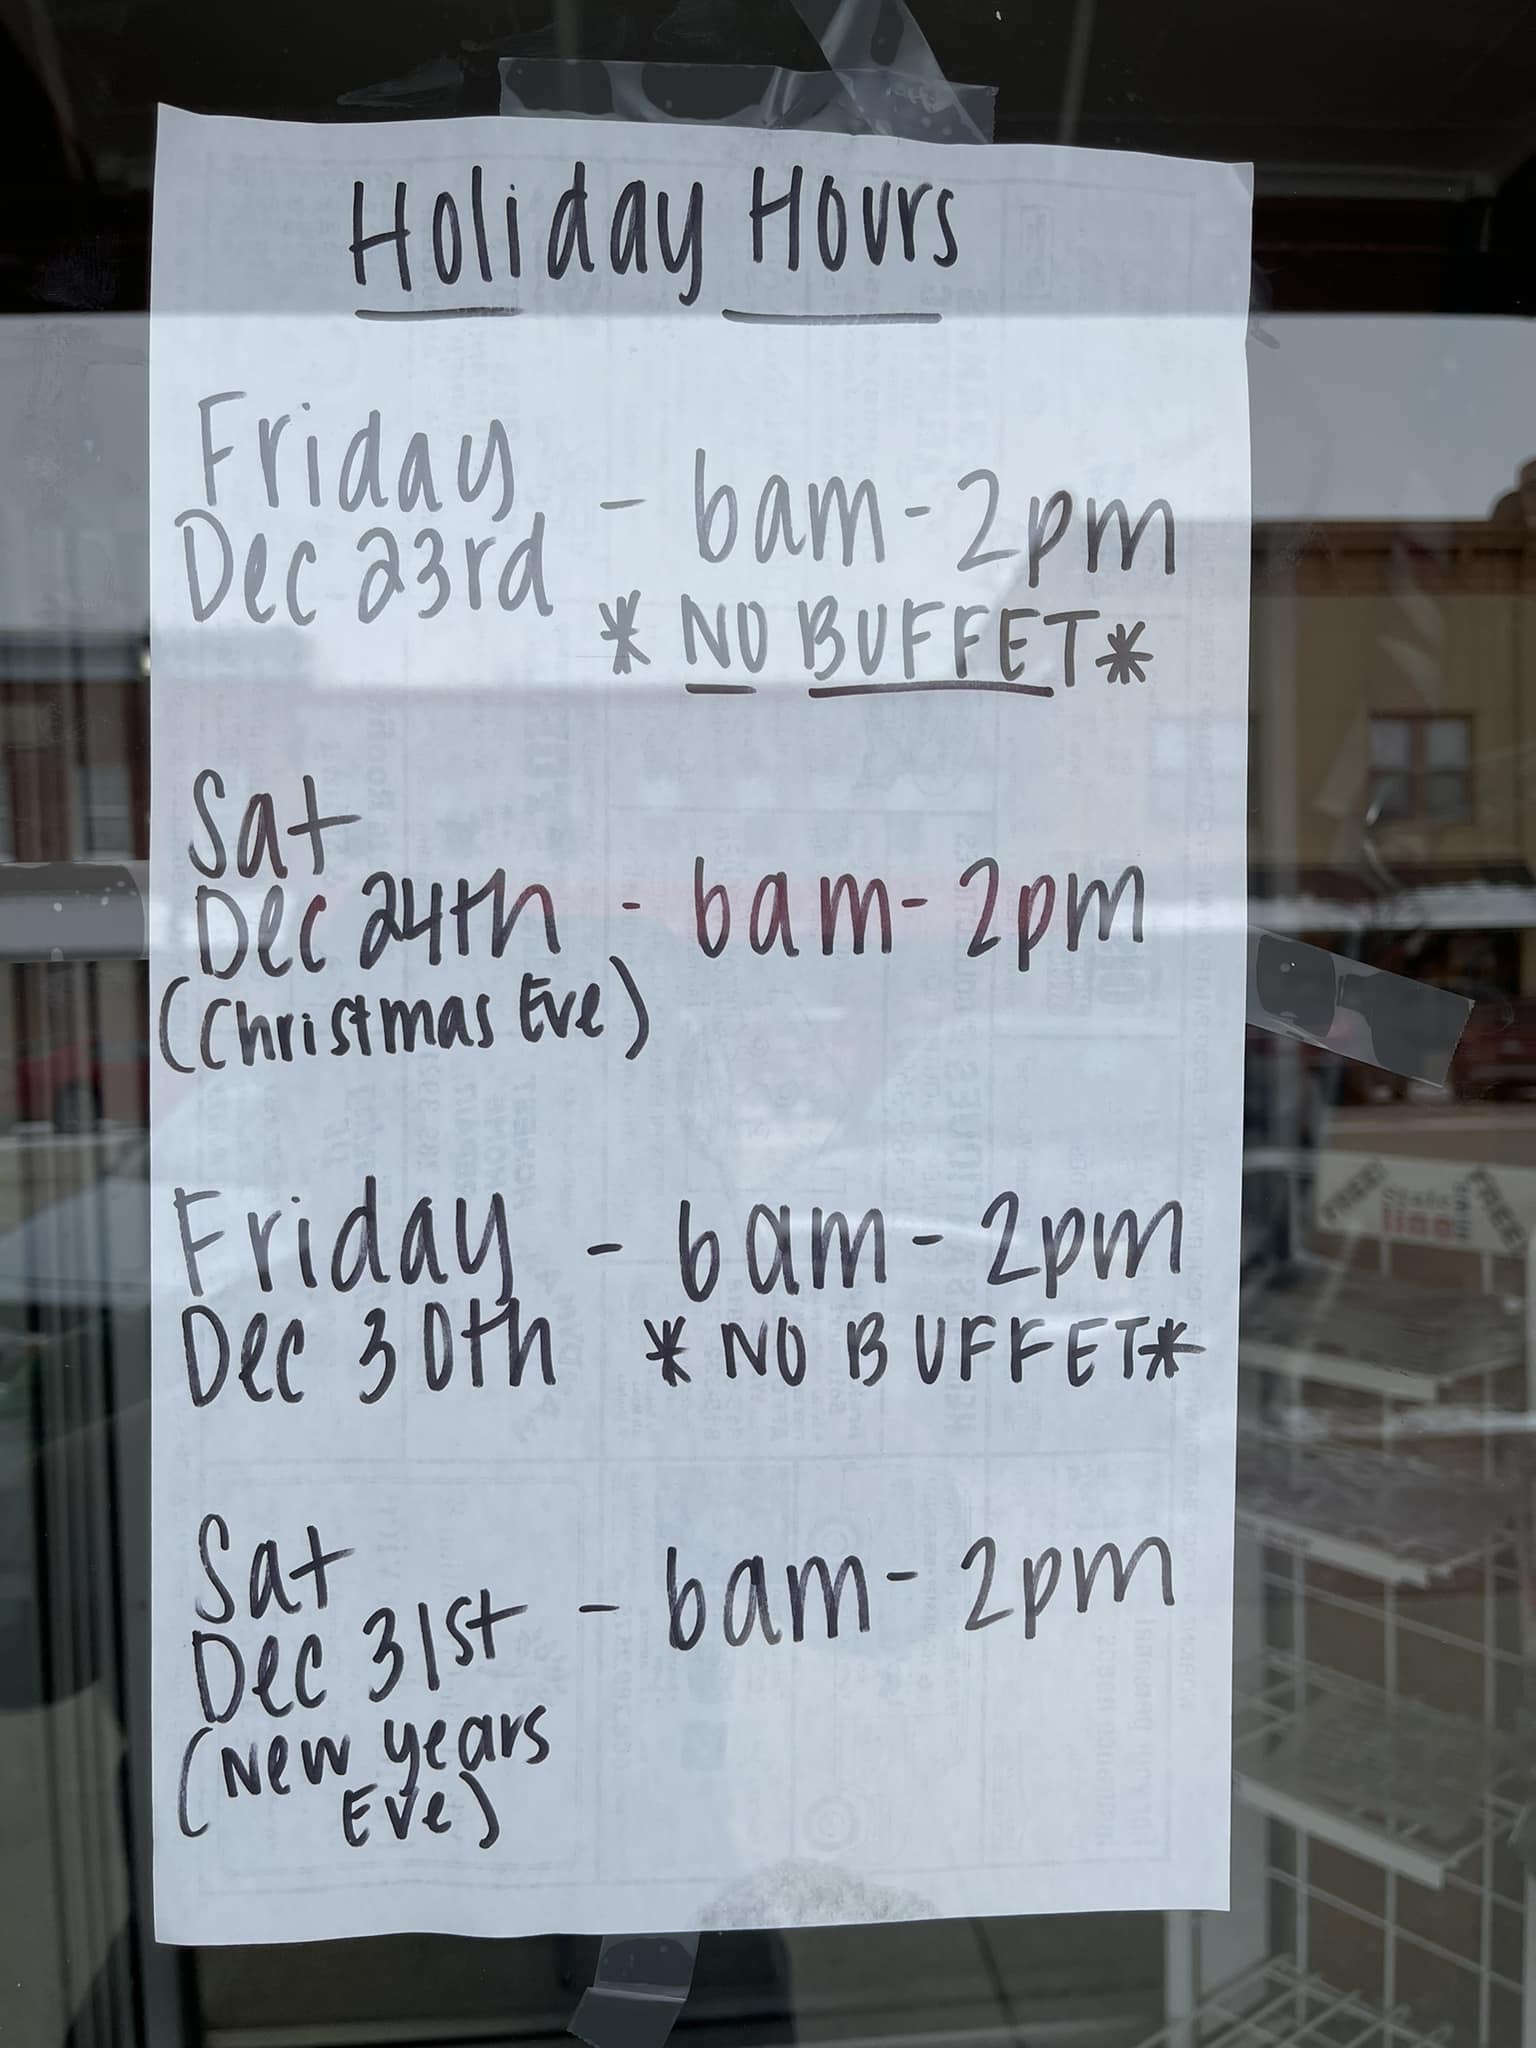 Holiday Hours
Friday
Dec 23rd - 6am - 2pm
* NO BUFFET *
Sat
Dec 24th - 6am - 2pm
(Christmas Eve)
Friday - 6am - 2pm
Dec 30th * NO BUFFET *
Sat
Dec 31st - 6am - 2pm
(New years
Eve)
FREE!
State
line
FREE